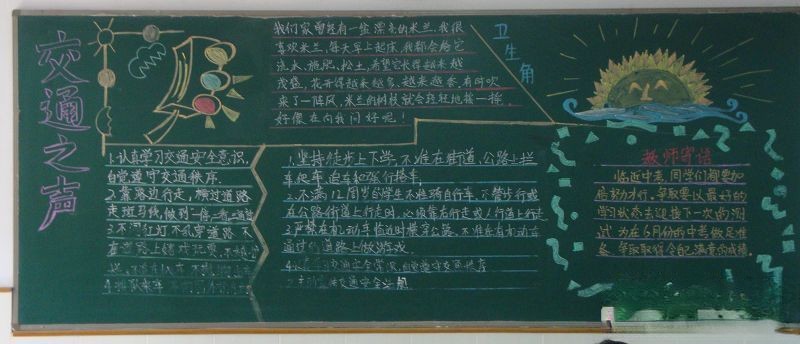 交通之声
我们家曾经有一盆漂亮的米兰，我很
喜欢米兰，每天早上起床，我都会给它
浇水、施肥、松土，希望它长得越来越
茂盛，花开得越来越多、越来越香。有时吹
来了一阵风，米兰的树枝就会轻轻地摇一摇，
好像在向我问好呢！
卫生角
1.认真学习交通安全意识，
自觉遵守交通秩序.
2.靠路边行走，横过道路
走斑马线，做到一停二看三通过
3.不闯红灯不乱穿道路 不
在道路上嬉戏玩耍，
1.坚持徒步上下学，不准在街道、公路上拦
车爬车追车和强行搭车；
2.不满12周岁的学生不准骑自行车，不管步行或
在公路街道上行走时，必须靠右行走或人行道上行走
3.严禁在机动车临近时横穿公路，不准在有机动车
通过的道路上做游戏
交通安全常识，自觉遵守交通秩序
教师寄语
临近中考，同学们都要加
倍努力才行，争取要以最好的
学习状态去迎接下一次的测
试，为在6月份的中考做足准
备，争取取得令自己满意的成绩。